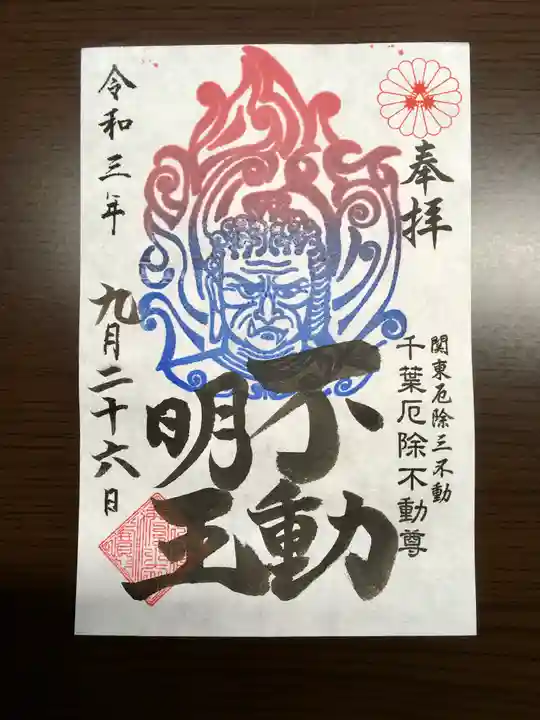 奉拝
関東厄除三不動
千葉厄除不動尊
不動
明王
令和三年
九月二十六日